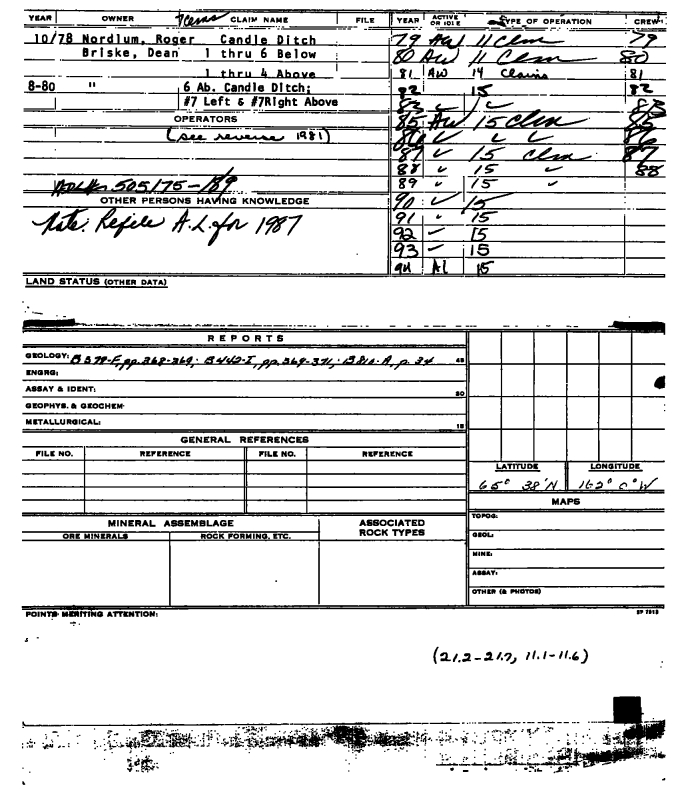 YEAR OWNER CLAIM NAME FILE YEAR ACTIVE OR IDLE TYPE OF OPERATION CREW
10/78 Nordlum, Roger Candle Ditch 79 AW 11 Clm 79
Briske, Dean 1 thru 6 Below 80 AW 11 Clm 80
1 thru 4 Above 81 AW 14 Claims 81
8-80 " 6 Ab. Candle Ditch; 82 15 82
#7 Left & #7Right Above 83 ✓ 1 ✓ 83
OPERATORS 85 AW 15 Clm 85
(see reverse 1981) 86 ✓ ✓ ✓ 86
87 ✓ 15 clm 87
88 " 15 " 88
505175-189 89 " 15 "
OTHER PERSONS HAVING KNOWLEDGE 90 ✓ 15
Note: Refile A.L. for 1987 91 " 15
92 ✓ 15
93 ✓ 15
94 AL 15
LAND STATUS (OTHER DATA)
REPORTS
GEOLOGY: B379-F, pp. 368-369; B442-I, pp. 369-371; B810-A, p. 34 45
ENGRG:
ASSAY & IDENT: 20
GEOPHYS. & GEOCHEM:
METALLURGICAL: 15
GENERAL REFERENCES
FILE NO. REFERENCE FILE NO. REFERENCE
LATITUDE LONGITUDE
65° 38'N 162° 0'W
MAPS
TOPOG:
MINERAL ASSEMBLAGE ASSOCIATED ROCK TYPES
ORE MINERALS ROCK FORMING, ETC.
GEOL:
MINE:
ASSAY:
OTHER (& PHOTOS)
POINTS MERITING ATTENTION: SP 7513
(21.2-21.7, 11.1-11.6)